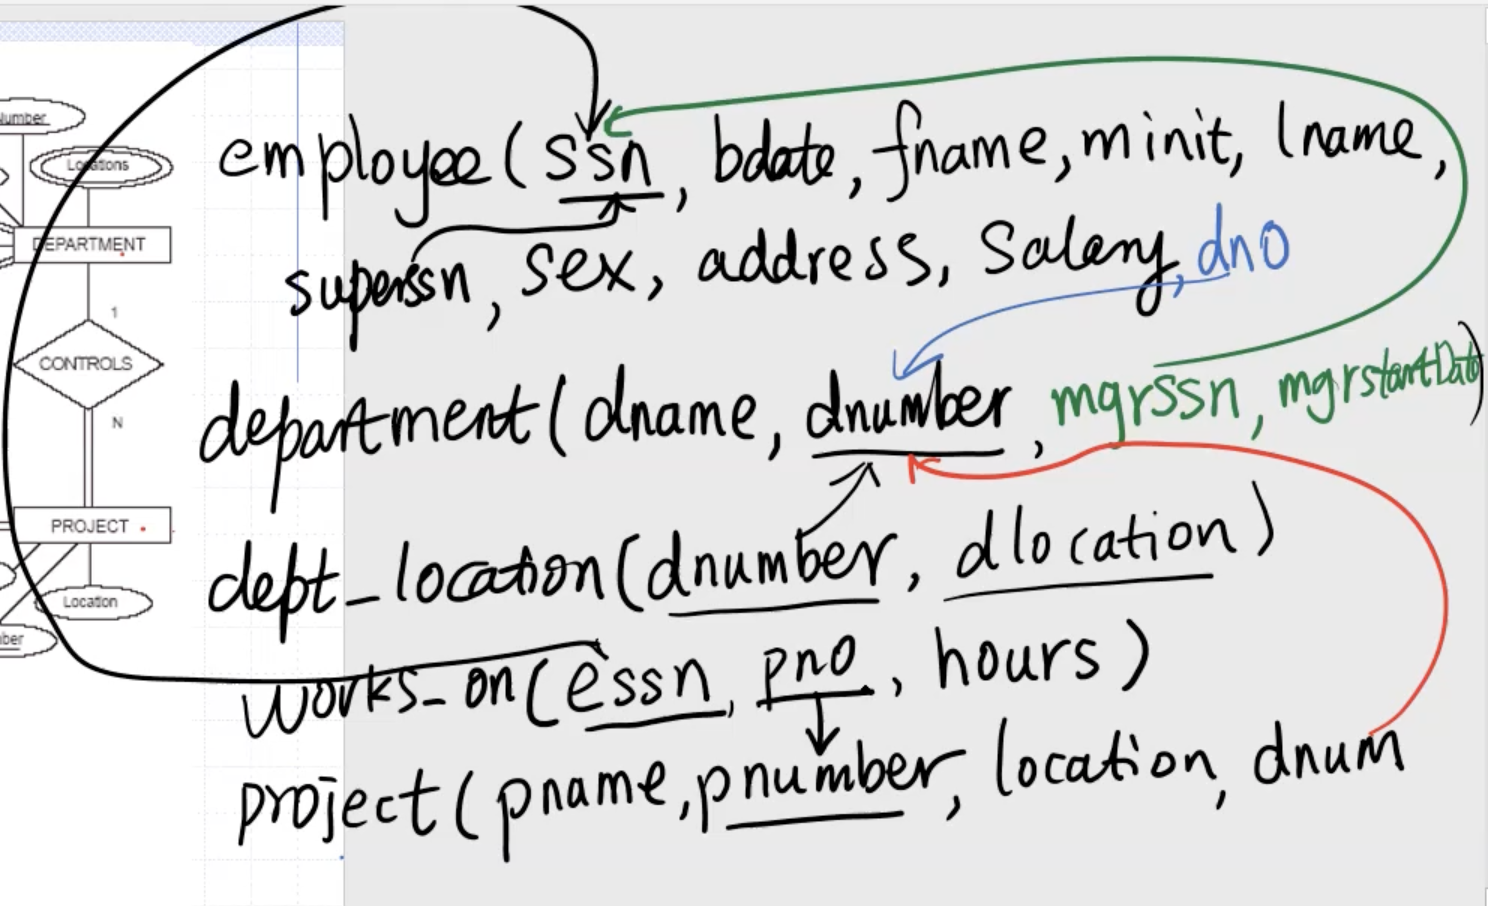 Number
Locations
DEPARTMENT
1
CONTROLS
N
PROJECT
Location
ber
employee(ssn, bdate, fname, minit, lname,
superssn, sex, address, Salary, dno
department(dname, dnumber, mgrssn, mgrstartDate)
dept_location(dnumber, dlocation)
works_on(essn, pno, hours)
project(pname, pnumber, location, dnum